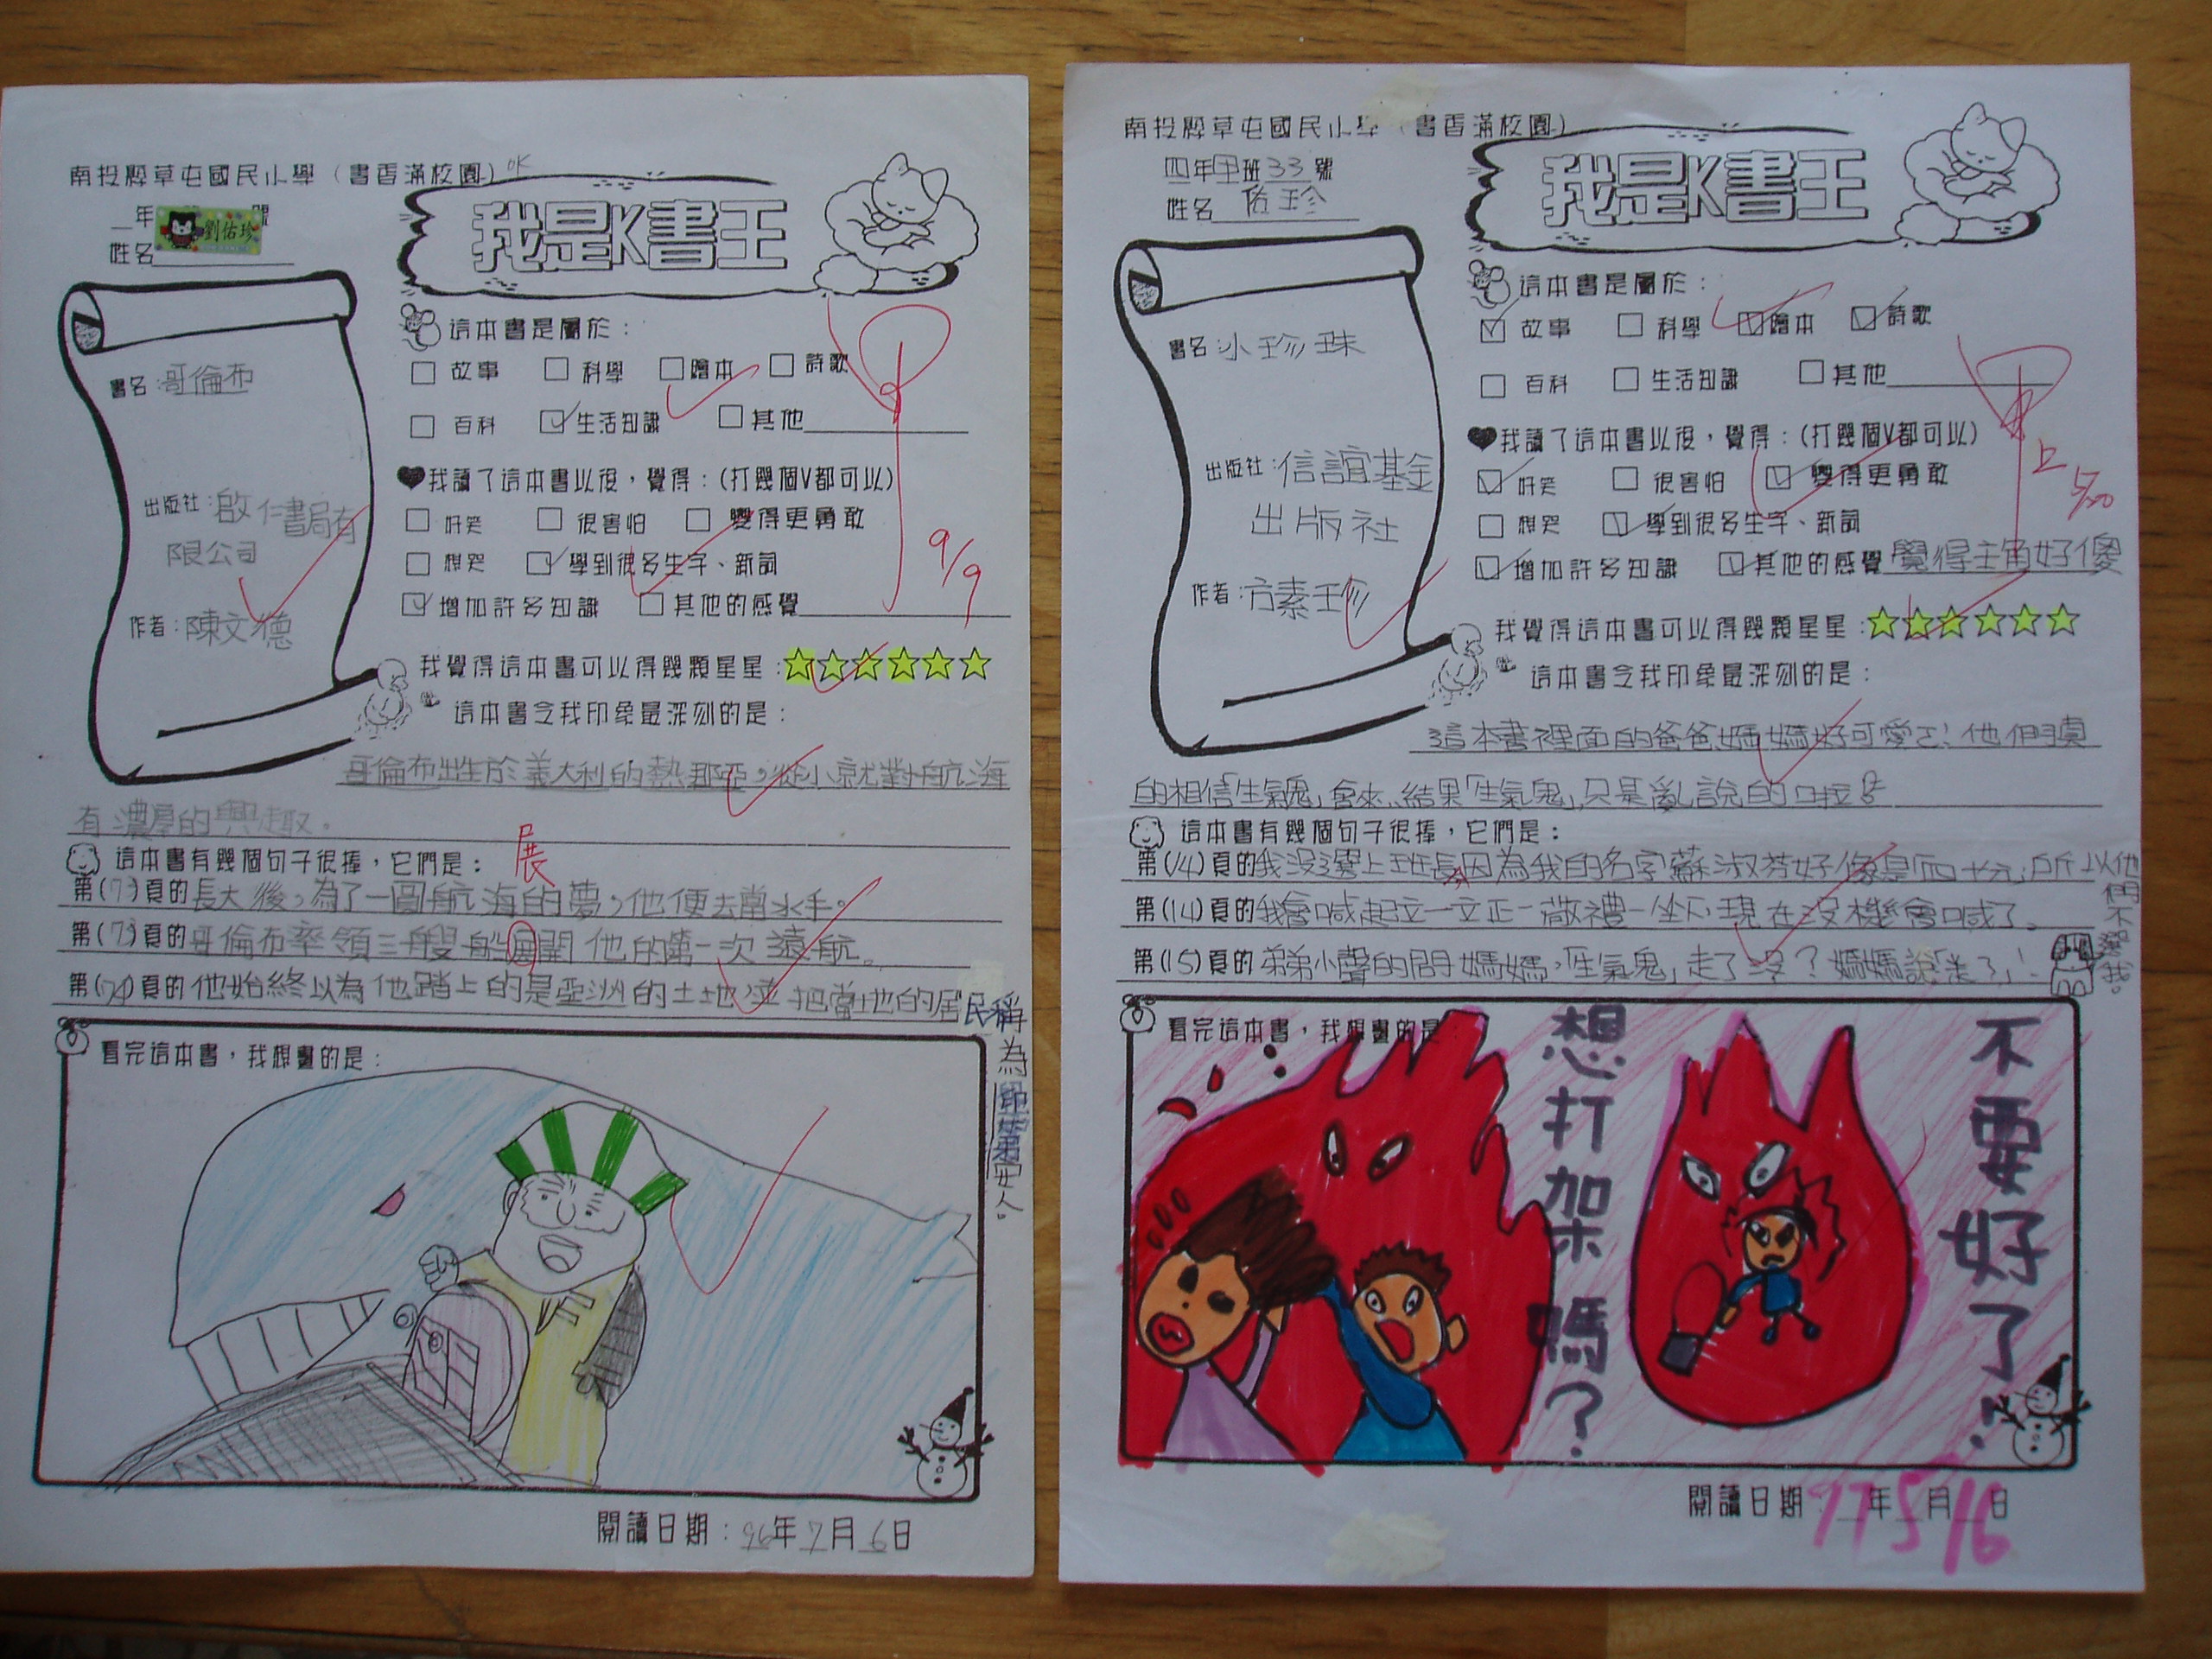 南投縣草屯國民小學（書香滿校園）OK
年 號
劉佑珍
姓名
我是K書王
書名：哥倫布
出版社：啟仁書局有
限公司
作者：陳文德
這本書是屬於：
□故事 □科學 □繪本 □詩歌
□百科 ☑生活知識 □其他
我讀了這本書以後，覺得：(打幾個V都可以)
□好笑 □很害怕 □變得更勇敢
□想哭 ☑學到很多生字、新詞
☑增加許多知識 □其他的感覺
甲
9/9
我覺得這本書可以得幾顆星星：☆☆☆☆☆☆
這本書令我印象最深刻的是：
哥倫布出生於義大利的熱那亞，從小就對航海
有濃厚的興趣。
這本書有幾個句子很棒，它們是：
展
第(73)頁的長大後，為了一圓航海的夢，他便去當水手。
第(73)頁的哥倫布率領三艘船展開他的第一次遠航。
第(74)頁的他始終以為他踏上的是亞洲的土地，並把當地的居民稱
為印第安人。
看完這本書，我想畫的是：
閱讀日期：96年7月9日
南投縣草屯國民小學（書香滿校園）
四年甲班33號
姓名 佑珍
我是K書王
書名：小珍珠
出版社：信誼基金
出版社
作者：方素珍
這本書是屬於：
☑故事 □科學 ☑繪本 ☑詩歌
□百科 □生活知識 □其他
我讀了這本書以後，覺得：(打幾個V都可以)
☑好笑 □很害怕 ☑變得更勇敢
□想哭 ☑學到很多生字、新詞
☑增加許多知識 ☑其他的感覺覺得主角好傻
甲上
5/20
我覺得這本書可以得幾顆星星：☆☆☆☆☆☆
這本書令我印象最深刻的是：
這本書裡面的爸爸媽媽好可愛ㄛ！他們真
的相信「生氣鬼」會來，結果「生氣鬼」只是亂說的啦！
這本書有幾個句子很棒，它們是：
第(14)頁的我沒選上班長因為我的名字蘇淑芬好像是「四十元」所以他
們不選我。
第(14)頁的我會喊起立—立正—敬禮—坐下，現在沒機會喊了。
第(15)頁的弟弟小聲的問媽媽，「生氣鬼」走了沒？媽媽說「走了」！
看完這本書，我想畫的是
想打架嗎？
不要好了！
閱讀日期：97年5月16日